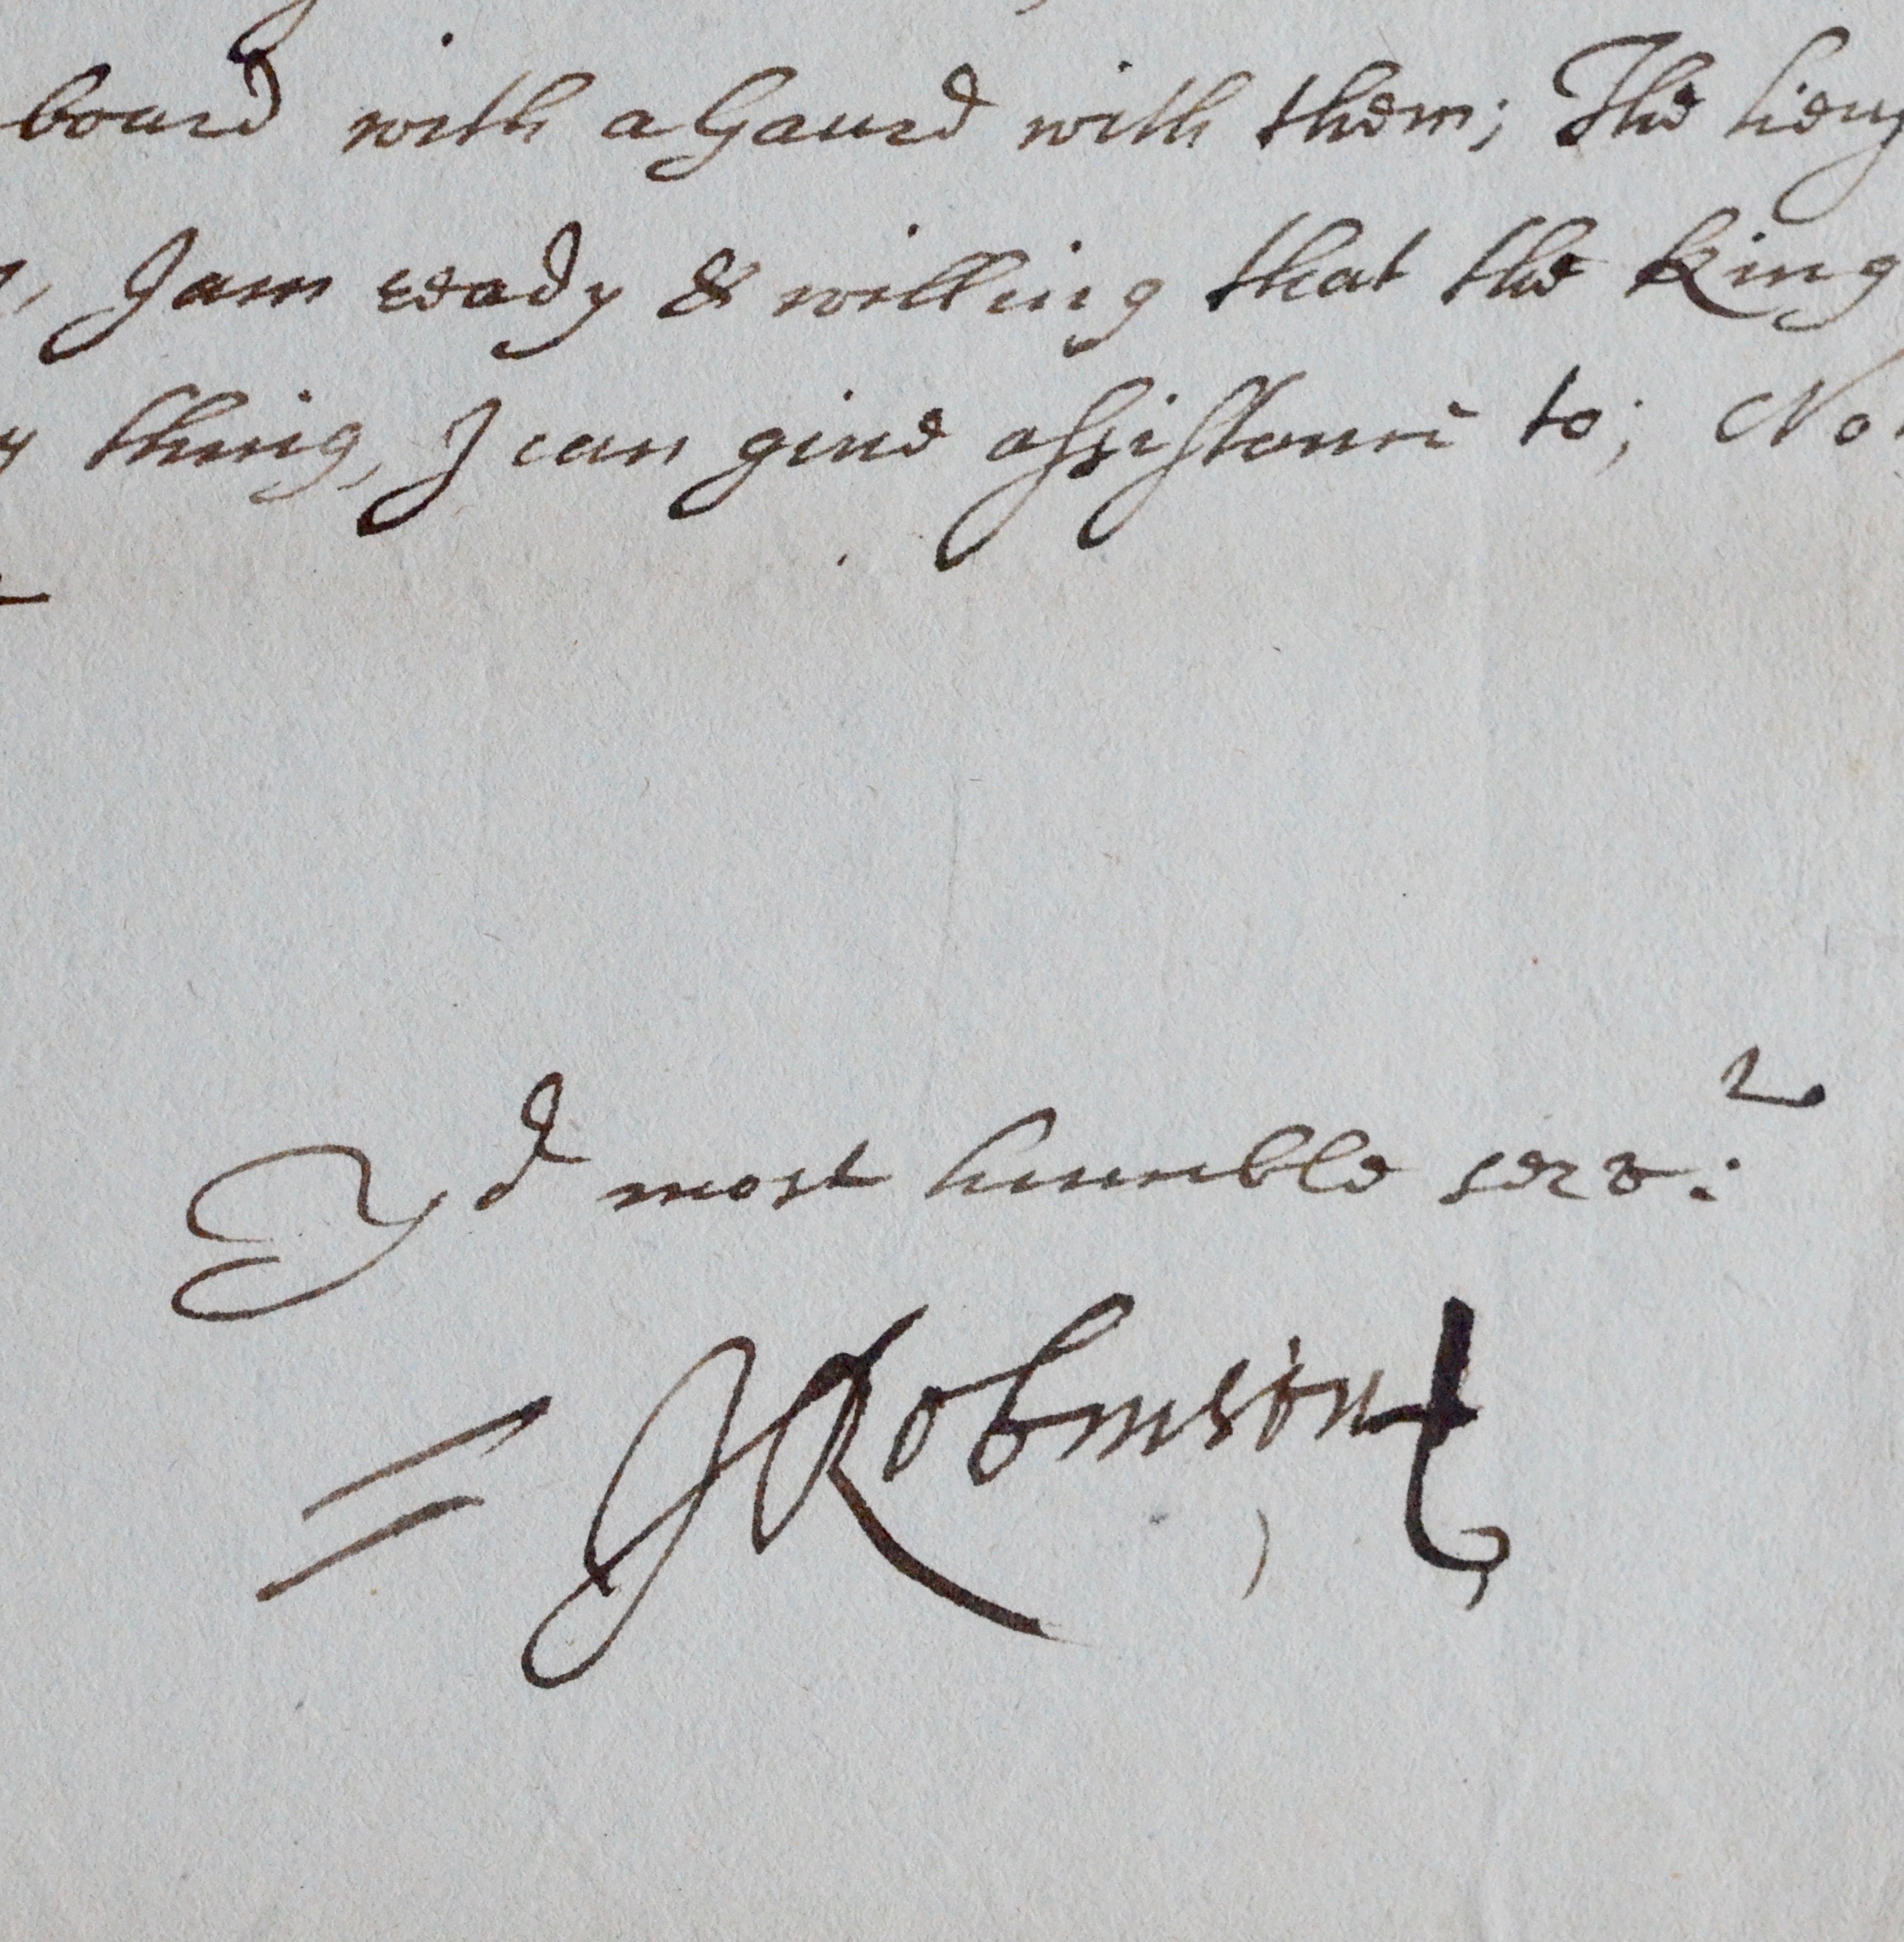 board with a Gaurd with them; The
, I am ready & willing that the King
y thing, I can give assistance to; No
Yor most humble serv:t
JRobinson